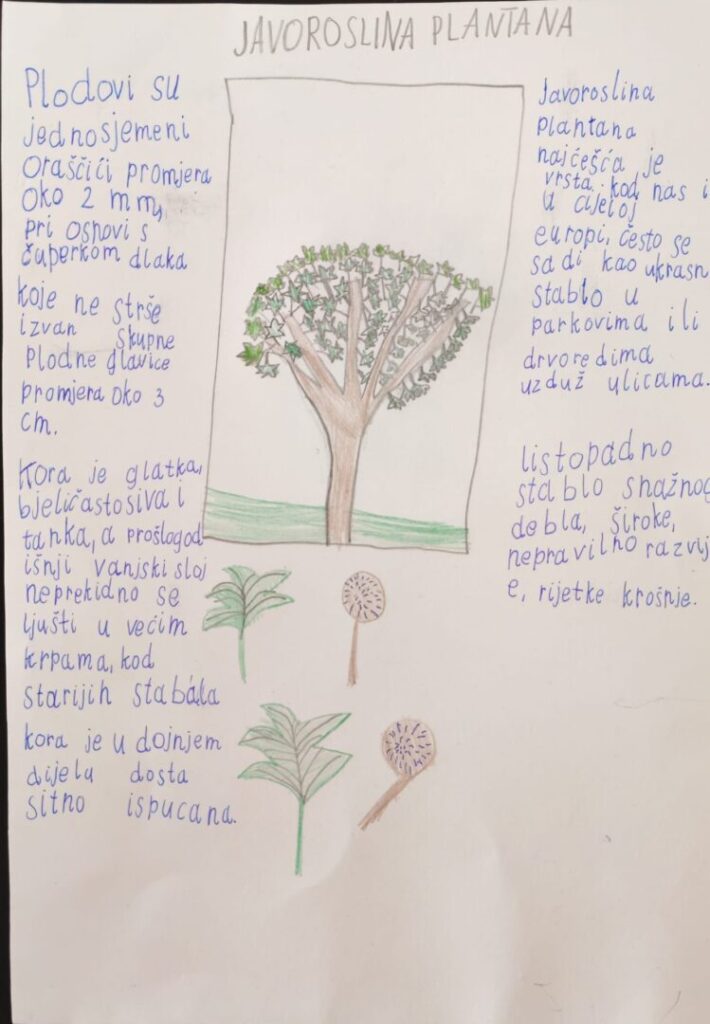 JAVOROSLINA PLANTANA
Plodovi su
jednosjemeni
Oraščići promjera
Oko 2 mm,
pri osnovi s
čuperkom dlaka
koje ne strše
izvan skupne
plodne glavice
promjera oko 3
cm.
Kora je glatka,
bjeličastosiva i
tanka, a prošlogod
išnji vanjski sloj
neprekidno se
ljušti u većim
krpama, kod
starijih stabala
kora je u dojnjem
dijelu dosta
sitno ispucana.
Javoroslina
plantana
najćešća je
vrsta kod nas i
u cijeloj
europi, često se
sadi kao ukrasn
stablo u
parkovima ili
drvoredima
uzduž ulicama.
listopadno
stablo snažnog
debla, široke,
nepravilno razvij
e, rijetke krošnje.